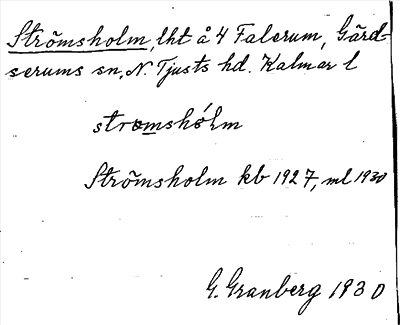 Strömsholm, lht å 4 Falerum, Gärd-
serums sn, N. Tjusts hd. Kalmar l
strømshólm
Strömsholm kb 1927, ml 1930
G. Granberg 1930